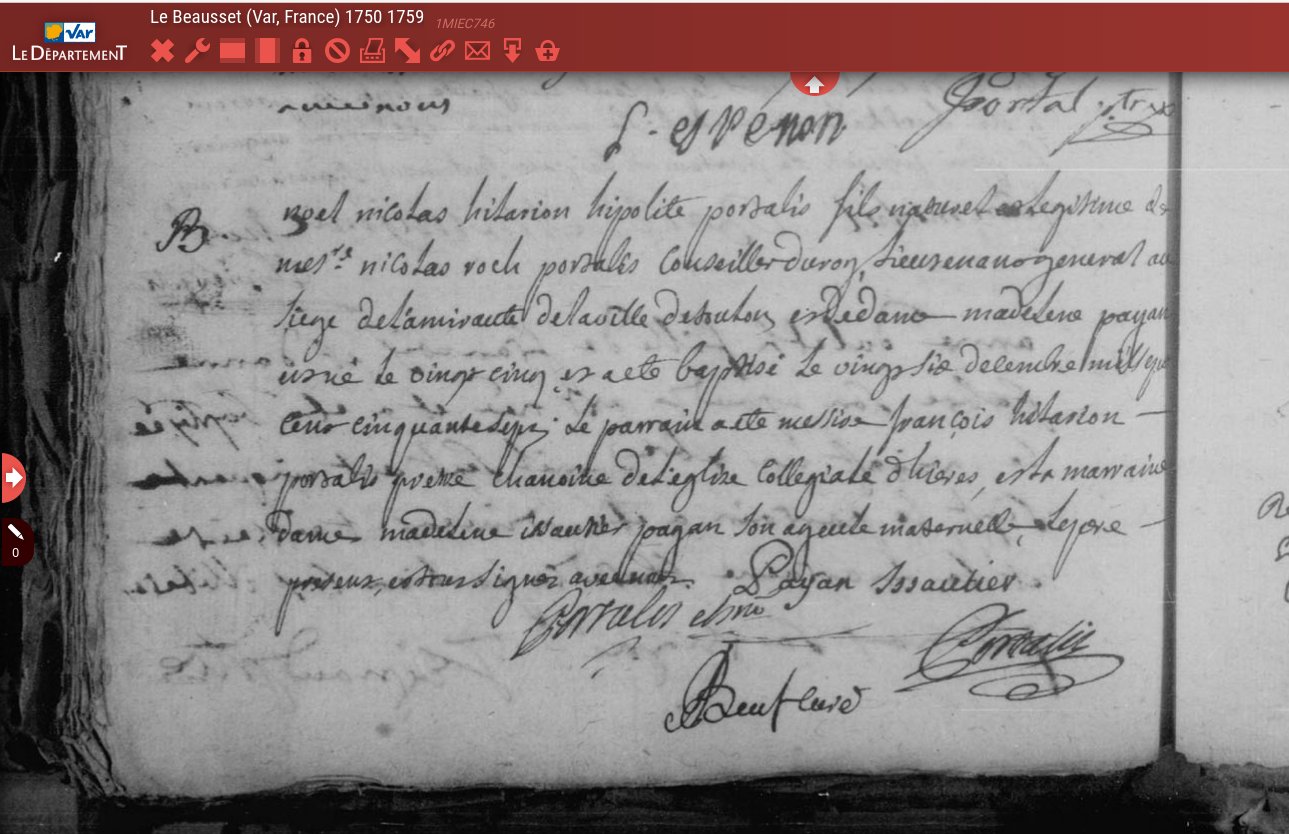 Le Beausset (Var, France) 1750 1759 1MIEC746
VAR
LE DÉPARTEMENT
Portal ptre
f. espenon
B
noel nicolas hilarion hipolite portalis fils naturel et legitime de
mes.re nicolas roch portalis Conseiller du roy, lieutenant general au
siege de l'amirauté de la ville de toulon, et de dame madelene payan
est né le vingt cinq et a ete baptisé le vingt six decembre mil sept
cent cinquante sept; le parrain a ete messire françois hilarion
portalis pretre chanoine de l'eglise Collegiale d'hieres, et la marraine
dame madelene issautier payan son ayeule maternelle, le pere
present, et tous signez avec nous. Payan Issautier
Portalis chno
Portalis
curé
0